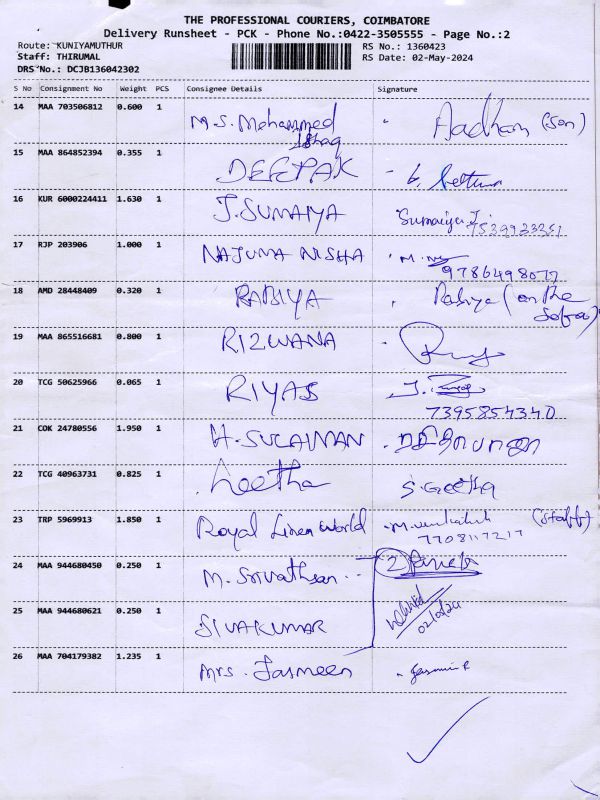 THE PROFESSIONAL COURIERS, COIMBATORE
Delivery Runsheet - PCK - Phone No.:0422-3505555 - Page No.:2
Route: KUNIYAMUTHUR
Staff: THIRUMAL
DRS No.: DCJB136042302
RS No.: 1360423
RS Date: 02-May-2024
S No Consignment No Weight PCS Consignee Details Signature
14 MAA 703506812 0.600 1 M.S. Mohammed Ishaq Aadhan (son)
15 MAA 864852394 0.355 1 DEEPAK
16 KUR 6000224411 1.630 1 J.SUMAIYA Sumaiya J.
7539923351
17 RJP 203906 1.000 1 NAJUMA NISHA
9786498077
18 AMD 28448409 0.320 1 RABIYA Rabiya (on the Sofa)
19 MAA 865516681 0.800 1 RIZWANA
20 TCG 50625966 0.065 1 RIYAS
7395854340
21 COK 24780556 1.950 1 H.SULAIMAN
22 TCG 40963731 0.825 1 Geetha S.Geetha
23 TRP 5969913 1.850 1 Royal Linen World (Staff)
7708117217
24 MAA 944680450 0.250 1 M. Srivathsan 2
25 MAA 944680621 0.250 1 SIVAKUMAR
26 MAA 704179382 1.235 1 Mrs. Jasmeen